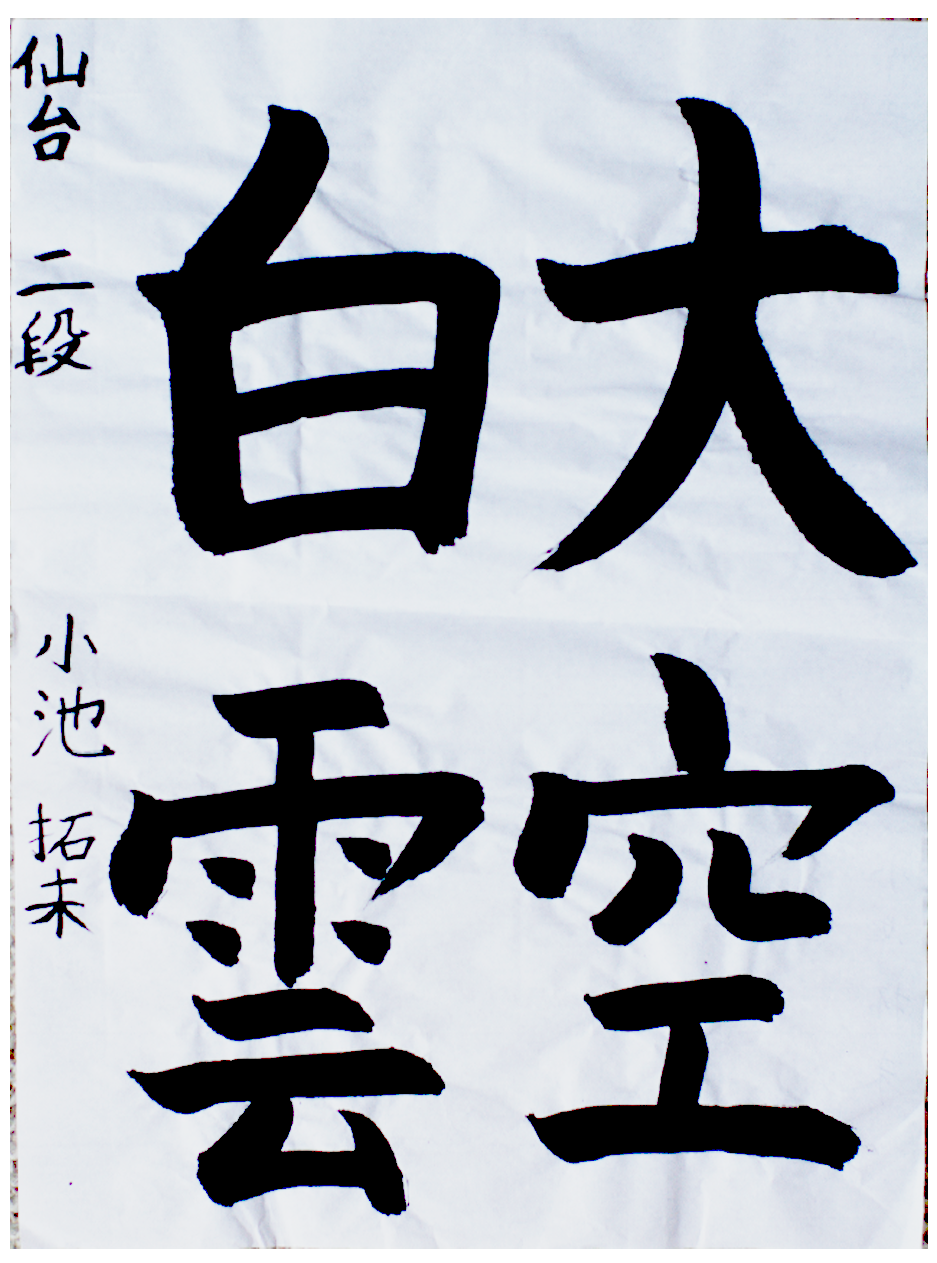 大空
白雲
仙台 二段 小池 拓未